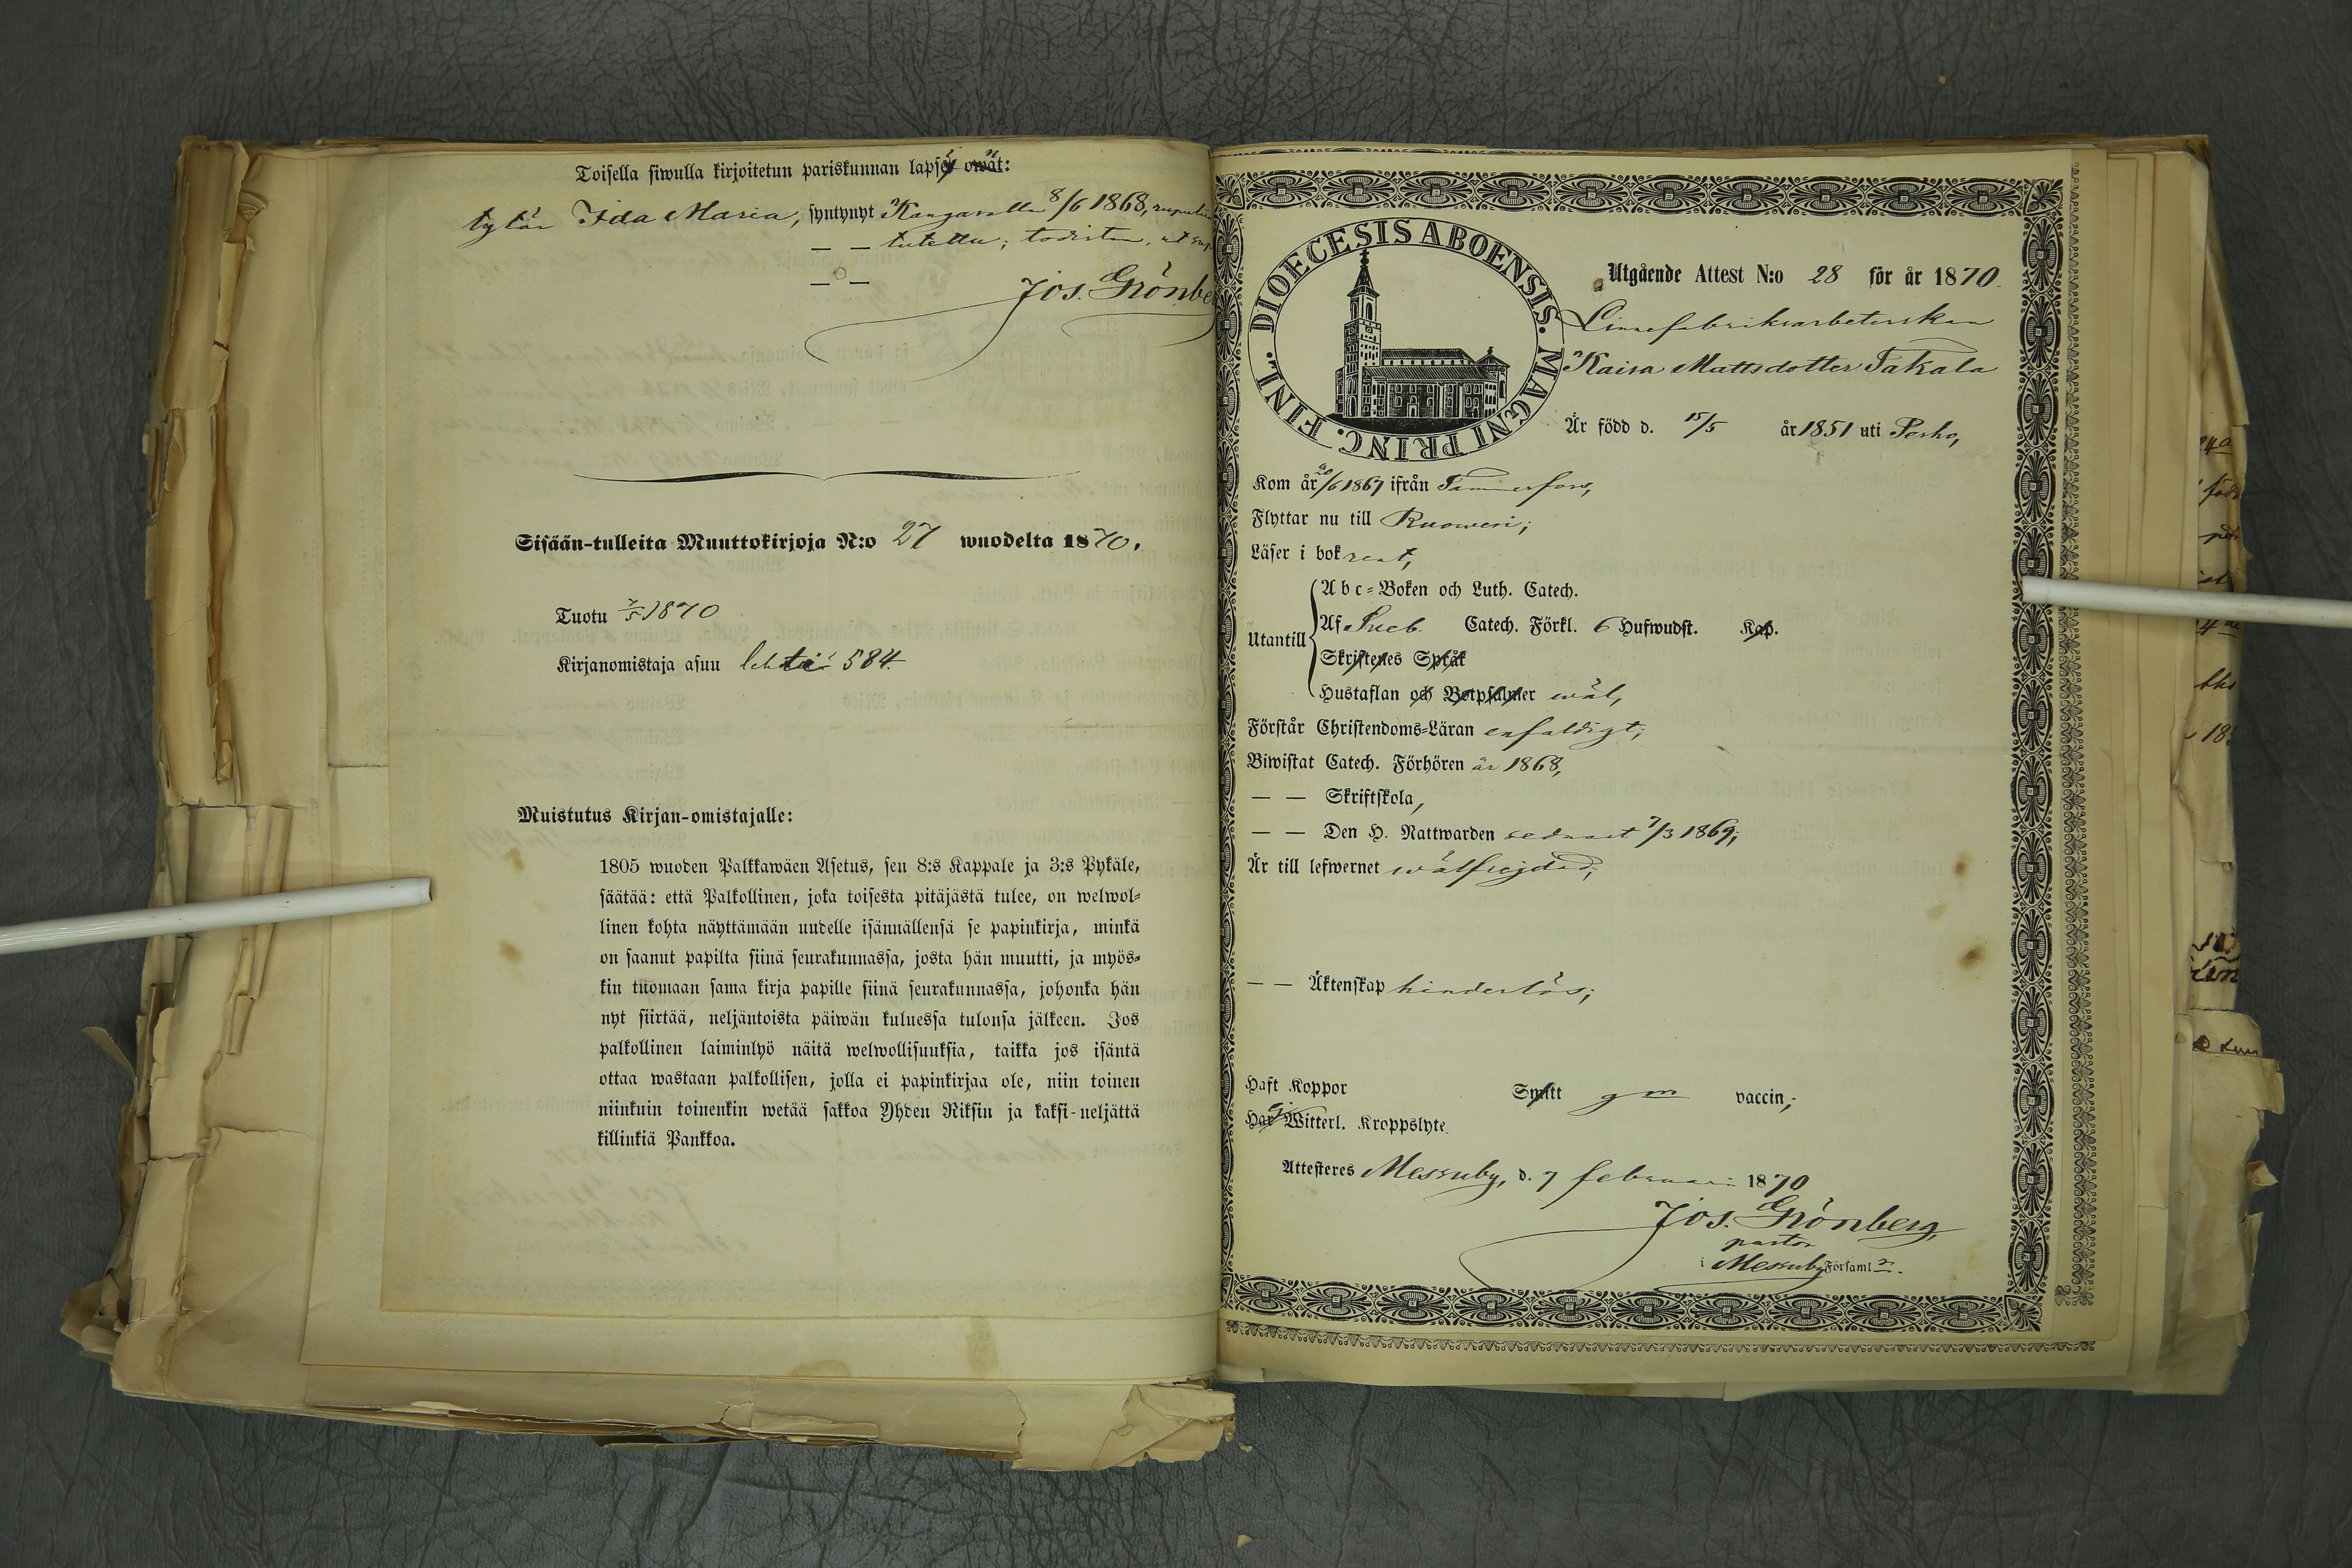 Toisella siwulla kirjoitetun pariskunnan lapsi on:
tytär Ida Maria, syntynyt Kangasalla 8/6 1868,
— — tutettu; todistan, ut supra
— —
Jos. Grönbe
Sisään-tulleita Muuttokirjoja N:o 27 wuodelta 1870.
Tuotu 7/5 1870
Kirjanomistaja asuu lehtiä 584.
Muistutus Kirjan-omistajalle:
1805 wuoden Palkkawäen Asetus, sen 8:s Kappale ja 3:s Pykäle,
säätää: että Palkollinen, joka toisesta pitäjästä tulee, on welwol-
linen kohta näyttämään uudelle isännällensä se papinkirja, minkä
on saanut papilta siinä seurakunnassa, josta hän muutti, ja myös-
kin tuomaan sama kirja papille siinä seurakunnassa, johonka hän
nyt siirtää, neljäntoista päiwän kuluessa tulonsa jälkeen. Jos
palkollinen laiminlyö näitä welwollisuuksia, taikka jos isäntä
ottaa wastaan palkollisen, jolla ei papinkirjaa ole, niin toinen
niinkuin toinenkin wetää sakkoa Yhden Riksin ja kaksi-neljättä
killinkiä Pankkoa.
DIOECESIS ABOENSIS. MAGNI PRINC. FINL.
Utgående Attest N:o 28 för år 1870
Linnefabriksarbeterskan
Kaisa Mattsdotter Takala
Är född d. 15/5 år 1851 uti Perho,
Kom år 20/6 1869 ifrån Tammerfors,
Flyttar nu till Ruowesi;
Läser i bok rent,
Utantill
Abc-Boken och Luth. Catech.
Af Sveb. Catech. Förkl. 6 Hufwudst. Kap.
Skriftenes Språk
Hustaflan och Botpsalmer wäl,
Förstår Christendoms-Läran enfaldigt;
Biwistat Catech. Förhören år 1868,
— — Skriftskola,
— — Den H. Nattwarden sednast 7/3 1869;
Är till lefwernet wälfrejdad;
— — Äktenskap hinderlös;
Haft Koppor Smitt g m vaccin;
Har ej Witterl. Kroppslyte
Attesteres Messuby, d. 7 februari 1870
Jos. Grönberg,
pastor
i Messuby Församl n.